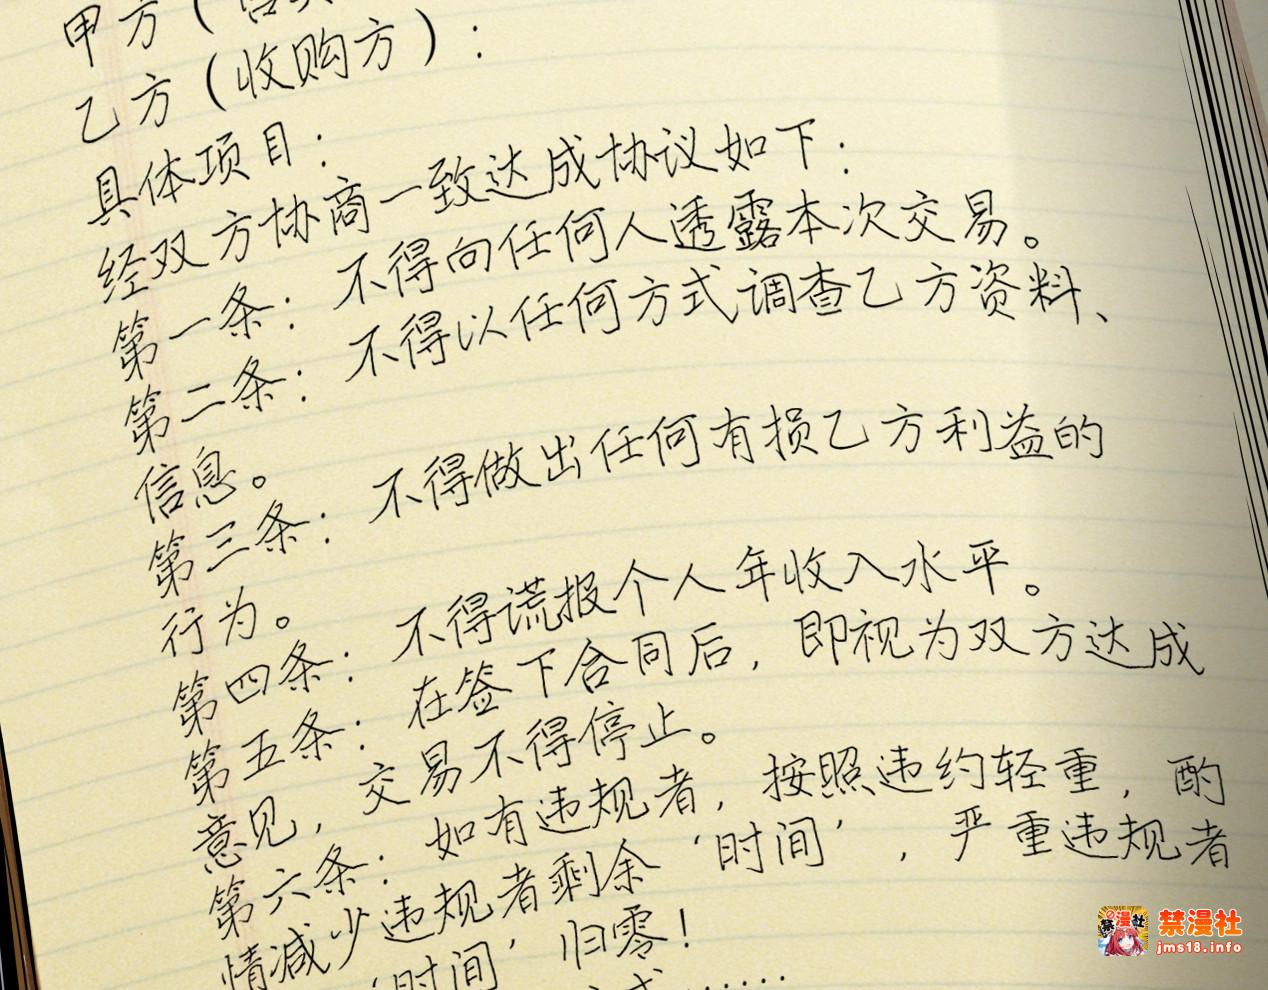 甲方(
乙方(收购方):
具体项目:
经双方协商一致达成协议如下:
第一条:不得向任何人透露本次交易。
第二条:不得以任何方式调查乙方资料、
信息。
第三条:不得做出任何有损乙方利益的
行为。
第四条:不得谎报个人年收入水平。
第五条:在签下合同后,即视为双方达成
意见,交易不得停止。
第六条:如有违规者,按照违约轻重,酌
情减少违规者剩余‘时间’,严重违规者
‘时间’归零!
式……
禁漫社
jms18.info